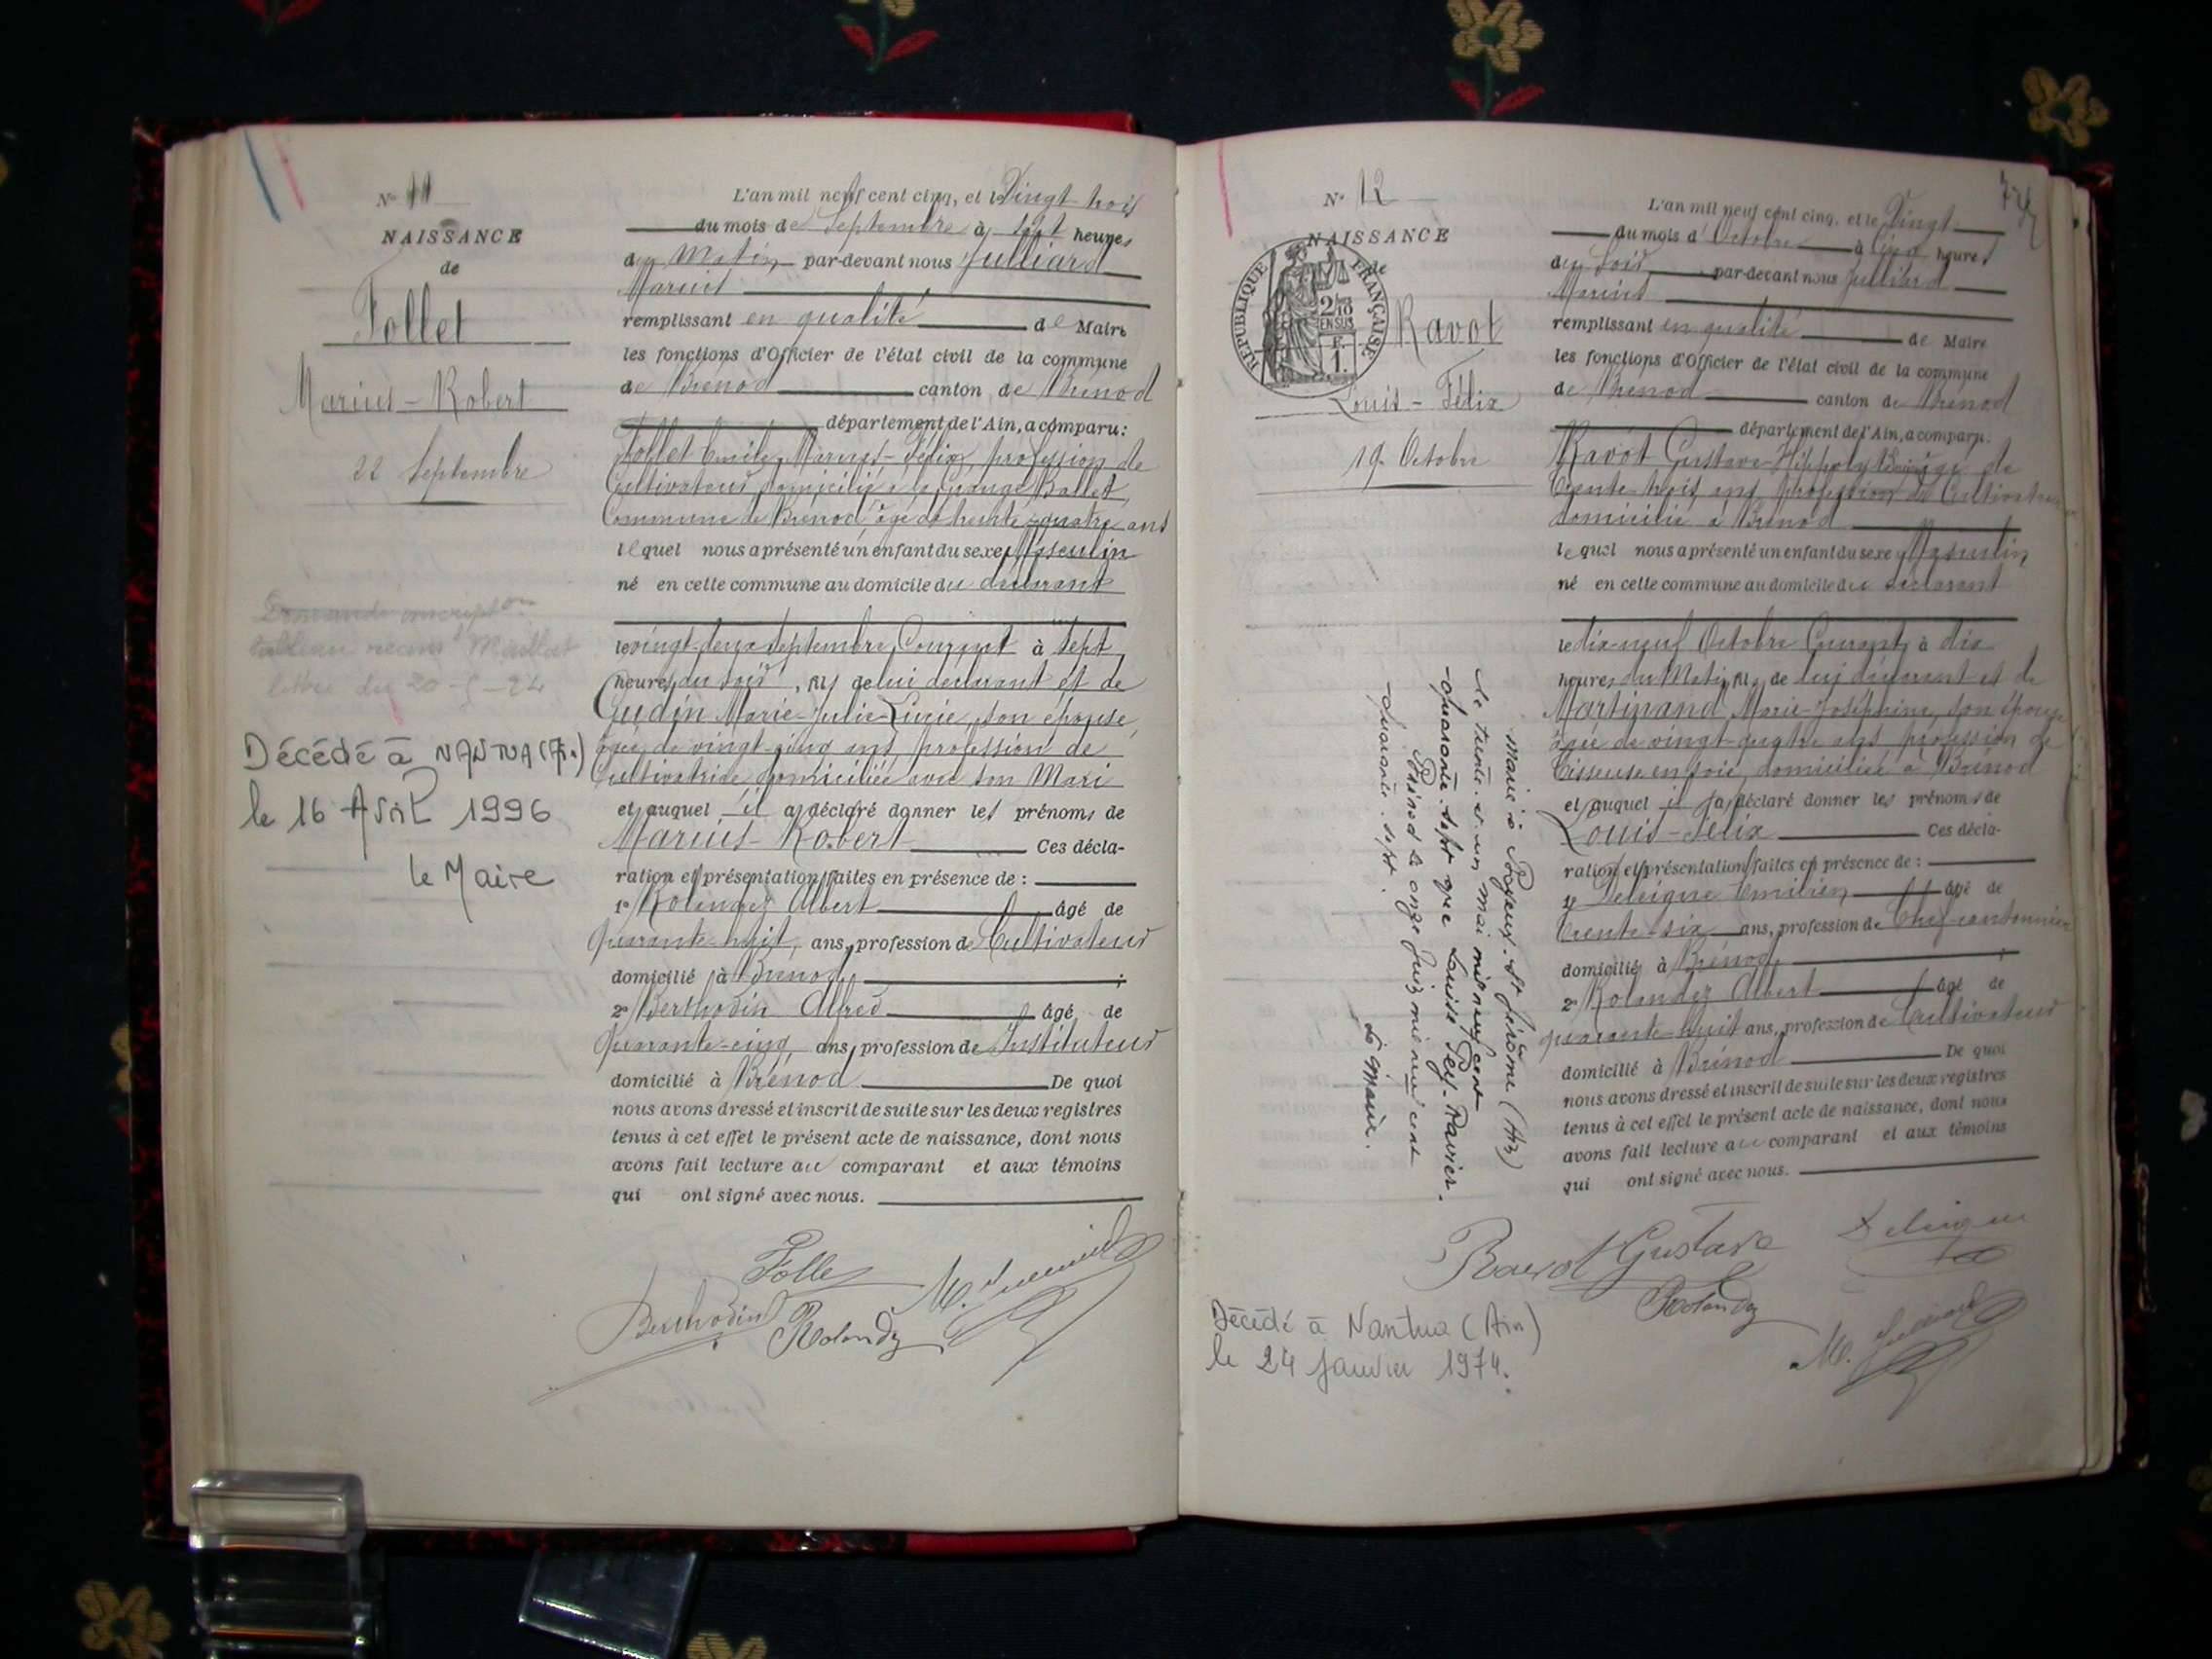 N° 11
NAISSANCE
de
Follet
Marius-Robert
22 Septembre
Demande inscript on
tableau recens t Maillat
lettre du 20-5-24
Décédé à NANTUA (Ain)
le 16 Avril 1996
le Maire
L'an mil neuf cent cinq, et le Vingt-trois
du mois de Septembre à sept heures
du Matin par-devant nous Julliard
Marius
remplissant en qualité de Maire
les fonctions d'Officier de l'état civil de la commune
de Brénod canton de Brénod
département de l'Ain, a comparu:
Follet Emile, Marius-Félix, profession de
Cultivateur domicilié à la Grange Ballet,
Commune de Brénod âgé de trente-quatre ans
lequel nous a présenté un enfant du sexe Masculin
né en cette commune au domicile du déclarant
le vingt-deux septembre Courant à sept
heures du soir, fils de lui déclarant et de
Gudin Marie-Julie-Lucie, son épouse,
âgée de vingt-cinq ans, profession de
Cultivatrice domiciliée avec son Mari
et auquel il a déclaré donner les prénoms de
Marius-Robert Ces décla-
ration et présentation faites en présence de :
1° Rolandez Albert âgé de
quarante-huit, ans, profession de Cultivateur
domicilié à Brénod ;
2° Berthodin Alfred âgé de
quarante-cinq ans, profession de Instituteur
domicilié à Brénod De quoi
nous avons dressé et inscrit de suite sur les deux registres
tenus à cet effet le présent acte de naissance, dont nous
avons fait lecture au comparant et aux témoins
qui ont signé avec nous.
Follet
M. Julliard
Berthodin
Rolandez
N° 12
NAISSANCE
de
RÉPUBLIQUE FRANÇAISE
2/10
EN SUS
F.
1.
Ravot
Louis-Félix
19 Octobre
Marié à St Jérôme (Ain)
le trente et un mai mil neuf cent
quarante-sept avec Louise Pey-Ravier.
Brénod le onze juin mil neuf cent
quarante-sept.
Le Maire.
L'an mil neuf cent cinq, et le Vingt
du mois d'Octobre à cinq heures
du Soir par-devant nous Julliard
Marius
remplissant en qualité de Maire
les fonctions d'Officier de l'état civil de la commune
de Brénod canton de Brénod
département de l'Ain, a comparu:
Ravot Gustave-Hippolyte âgé de
trente-trois ans, profession de Cultivateur
domicilié à Brénod
lequel nous a présenté un enfant du sexe Masculin
né en cette commune au domicile du déclarant
le dix-neuf Octobre Courant, à dix
heures du Matin, fils de lui déclarant et de
Martinand Marie-Joséphine, son épouse
âgée de vingt-quatre ans profession de
tisseuse en soie, domiciliée à Brénod
et auquel il a déclaré donner les prénoms de
Louis-Félix Ces décla-
ration et présentation faites en présence de :
1° Deleigue Emilien âgé de
trente-six ans, profession de Chef-cantonnier
domicilié à Brénod ;
2° Rolandez Albert âgé de
quarante-huit ans, profession de Cultivateur
domicilié à Brénod De quoi
nous avons dressé et inscrit de suite sur les deux registres
tenus à cet effet le présent acte de naissance, dont nous
avons fait lecture au comparant et aux témoins
qui ont signé avec nous.
Ravot Gustave
Deleigue
Rolandez
M. Julliard
Décédé à Nantua (Ain)
le 24 janvier 1974.